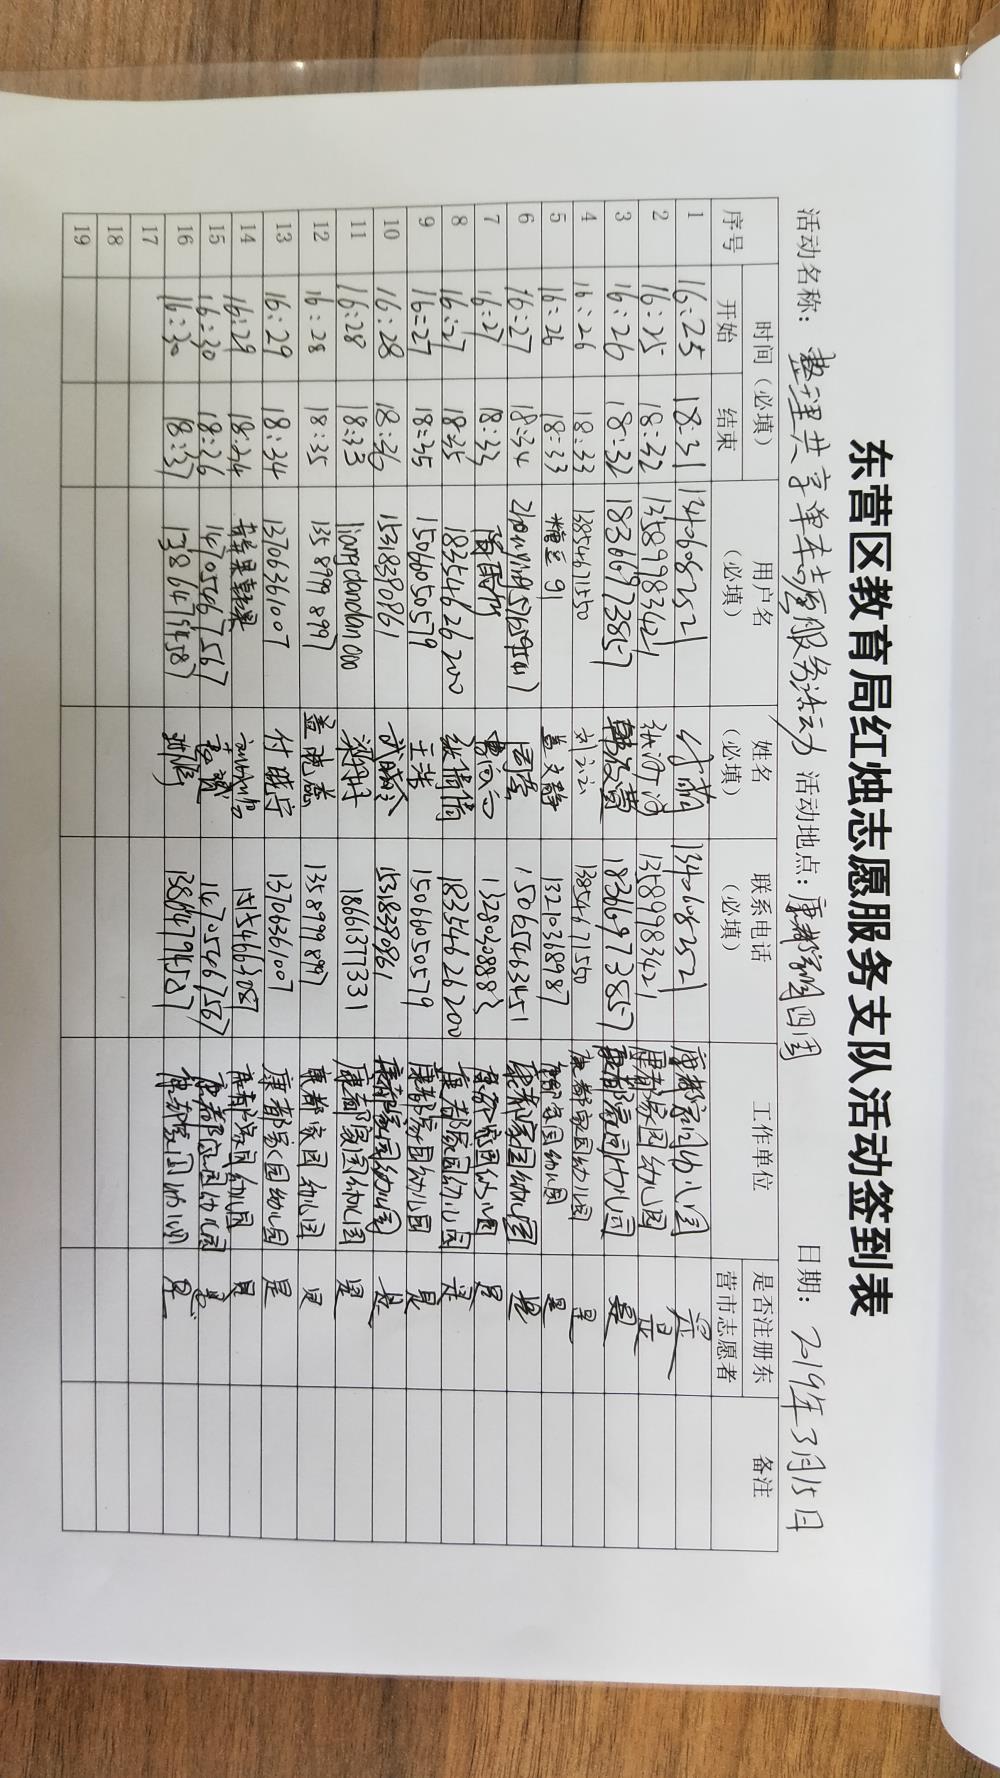 东营区教育局红烛志愿服务支队活动签到表
活动名称：整理共享单车志愿服务活动 活动地点：康都家园四周 日期：2019年3月15日
序号 时间（必填） 用户名（必填） 姓名（必填） 联系电话（必填） 工作单位 是否注册东营市志愿者 备注
开始 结束
1 16:25 18:31 家园幼儿园 是
2 16:25 18:32 13589983421 13589983421 康都家园幼儿园 是
3 16:26 18:32 18366973857 18366973857 康都家园幼儿园 是
4 16:26 18:33 13854671550 13854671550 康都家园幼儿园 是
5 16:26 18:33 糖豆91 13210368987 康都家园幼儿园 是
6 16:27 18:34 周莹 15065463451 康都家园幼儿园 是
7 16:27 18:33 13280308883 家园幼儿园 是
8 16:27 18:35 18354626200 张倩倩 18354626200 康都家园幼儿园 是
9 16:27 18:35 15066050579 王华 15066050579 康都家园幼儿园 是
10 16:28 18:36 15318390861 武晓令 15318390861 康都家园幼儿园 是
11 16:28 18:33 liangdandan000 梁丹丹 18661377331 康都家园幼儿园 是
12 16:28 18:35 13589998997 盖 13589998997 康都家园幼儿园 是
13 16:29 18:34 13706361007 付晓宁 13706361007 康都家园幼儿园 是
14 16:29 18:24 康都家园幼儿园 是
15 16:30 18:26 14705467567 14705467567 康都家园幼儿园 是
16 16:30 18:37 康都家园幼儿园 是
17
18
19